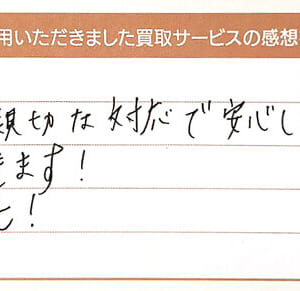 用いただきました買取サービスの感想
親切な対応で安心し
きます!
た!